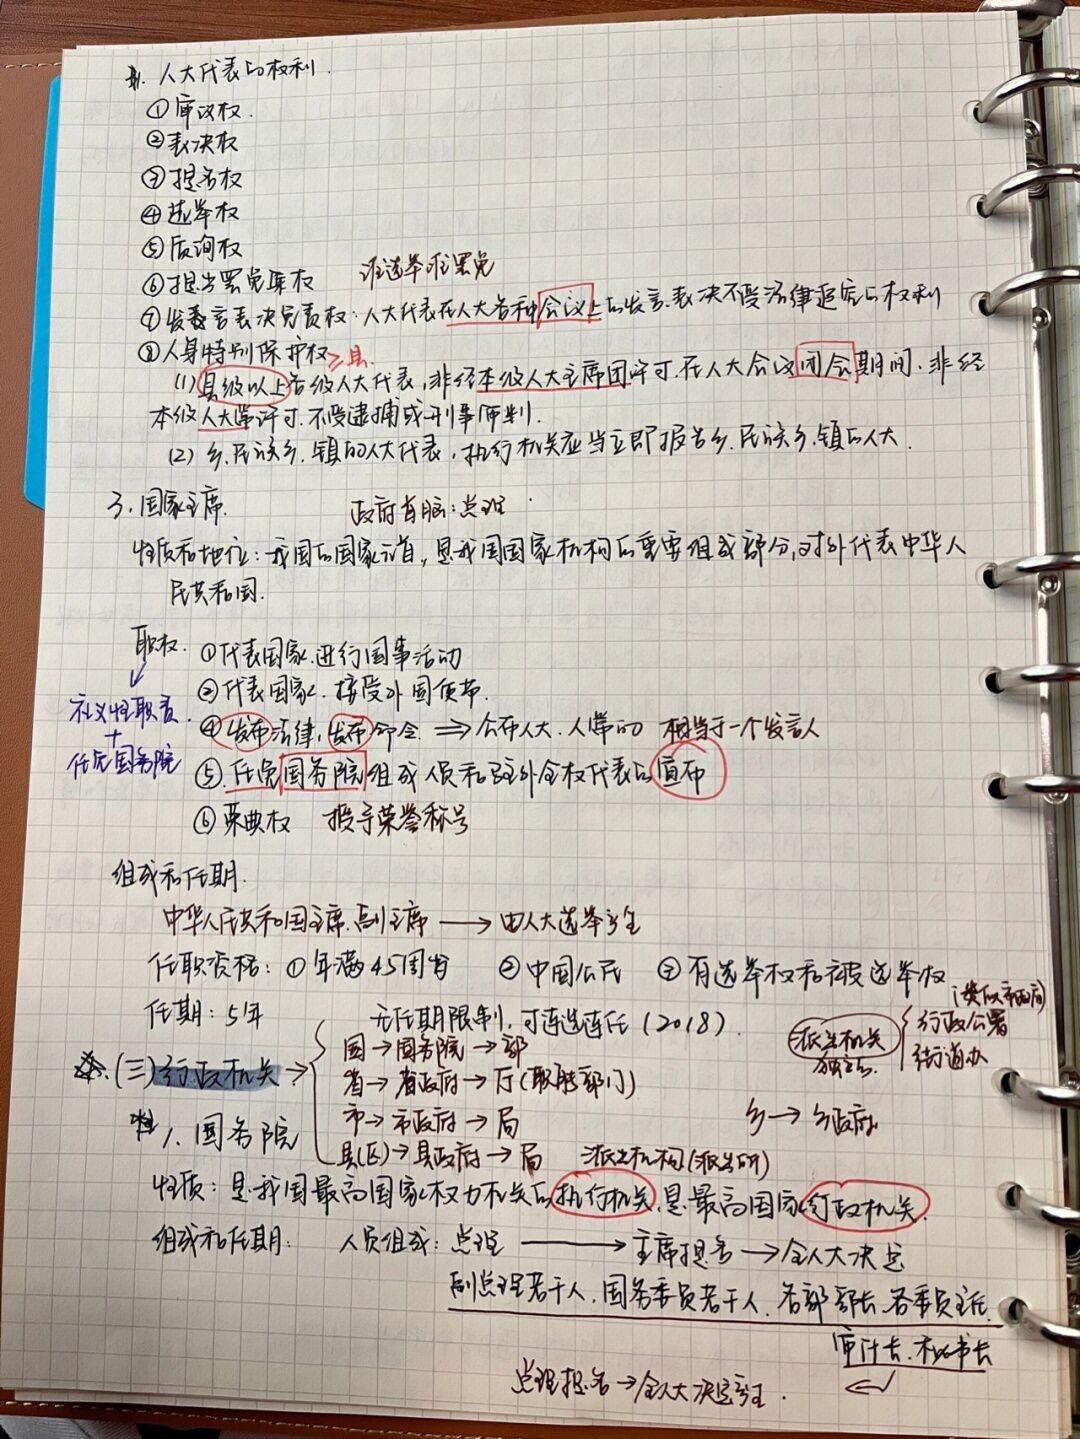 人大代表的权利.
①审议权.
②表决权
③提名权
④选举权
⑤质询权
⑥提出罢免案权 谁选举谁罢免
⑦发言表决免责权:人大代表在人大各种会议上的发言.表决不受法律追究的权利
⑧人身特别保护权 ≥县.
(1)县级以上各级人大代表,非经本级人大主席团许可.在人大会议闭会期间.非经
本级人大常许可.不受逮捕或刑事审判.
(2)乡.民族乡.镇的人大代表,执行机关应当立即报告乡.民族乡.镇的人大.
3.国家主席. 政府首脑:总理
性质和地位:我国的国家元首,是我国国家机构的重要组成部分,对外代表中华人
民共和国.
职权. ①代表国家.进行国事活动
②代表国家.接受外国使节.
礼义性职责. ④发布法律,发布命令 ⇒公布人大.人常的 相当于一个发言人
+
任免国务院 ⑤任免国务院组成人员和驻外全权代表的宣布
⑥荣典权 授予荣誉称号
组成和任期.
中华人民共和国主席.副主席→由人大选举产生
任职资格:①年满45周岁 ②中国公民 ③有选举权和被选举权
任期:5年 无任期限制,可连选连任(2018).
派出机关 独立 行政公署 街道办
(三)行政机关→ 国→国务院→部
省→省政府→厅(职能部门)
市→市政府→局 乡→乡政府
县(区)→县政府→局 派出机构(派出所)
1.国务院
性质:是我国最高国家权力机关的执行机关,是最高国家行政机关.
组成和任期: 人员组成:总理→主席提名→全人大决定
副总理若干人.国务委员若干人.各部部长.各委员主任.
审计长.秘书长
总理提名→全人大决定产生.